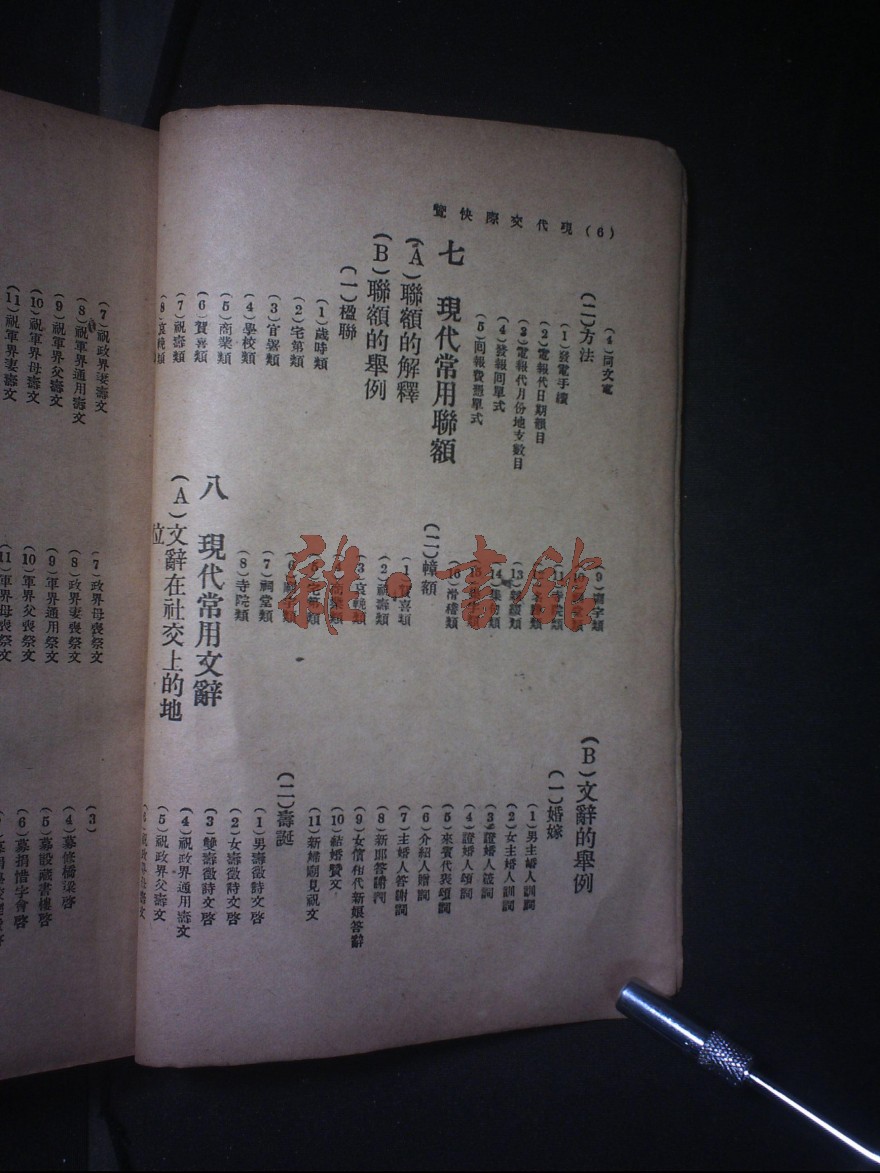 現代交際快覽(6)
(4)同文電
(二)方法
(1)發電手續
(2)電報代日期韻目
(3)電報代月份地支數目
(4)發報回單式
(5)回報費憑單式
七 現代常用聯額
(A)聯額的解釋
(B)聯額的舉例
(一)楹聯
(1)歲時類
(2)宅第類
(3)官署類
(4)學校類
(5)商業類
(6)賀喜類
(7)祝壽類
(8)哀輓類
(16)滑稽類
(二)幛額
(1)賀喜類
(2)祝壽類
(3)哀輓類
(7)祠堂類
(8)寺院類
八 現代常用文辭
(A)文辭在社交上的地位
(B)文辭的舉例
(一)婚嫁
(1)男主婚人訓詞
(2)女主婚人訓詞
(3)證婚人箴詞
(4)證婚人頌詞
(5)來賓代表頌詞
(6)介紹人贈詞
(7)主婚人答謝詞
(8)新郎答謝詞
(9)女儐相代新娘答辭
(10)結婚贊文
(11)新婦廟見祝文
(二)壽誕
(1)男壽徵詩文啓
(2)女壽徵詩文啓
(3)雙壽徵詩文啓
(4)祝政界通用壽文
(5)祝政界父壽文
(7)祝政界妻壽文
(8)祝軍界通用壽文
(9)祝軍界父壽文
(10)祝軍界母壽文
(11)祝軍界妻壽文
(7)政界母喪祭文
(8)政界妻喪祭文
(9)軍界通用祭文
(10)軍界父喪祭文
(11)軍界母喪祭文
(3)
(4)募修橋梁啓
(5)募設藏書樓啓
(6)募捐惜字會啓
雜·書館